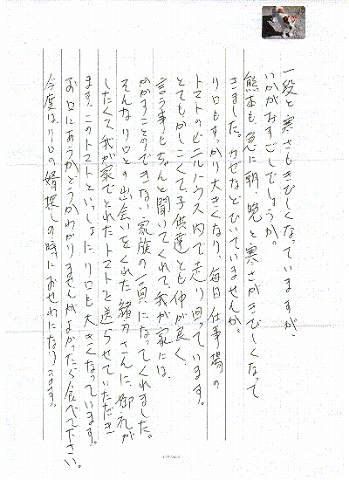 一段と寒さもきびしくなっていますが、
いかがおすごしでしょうか。
熊本も急に朝、晩と寒さがきびしくなって
きました。かぜなどひいていませんか。
リロもすっかり大きくなり、毎日仕事場の
トマトのビニルハウス内で走り回っています。
とてもかしこくて子供達とも仲が良く、
言う事もちゃんと聞いてくれて我が家には、
かかすことのできない家族の一員になってくれました。
そんなリロとの出会いをくれた緒方さんに、御礼が
したくて我が家でとれたトマトを送らせていただき
ます。このトマトといっしょにリロも大きくなっています。
お口にあうかどうかわかりませんがよかったら食べて下さい。
今度はリロの婿探しの時におせわになります。